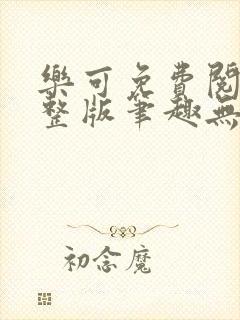 樂可免費閱
整版筆趣無
初念魔